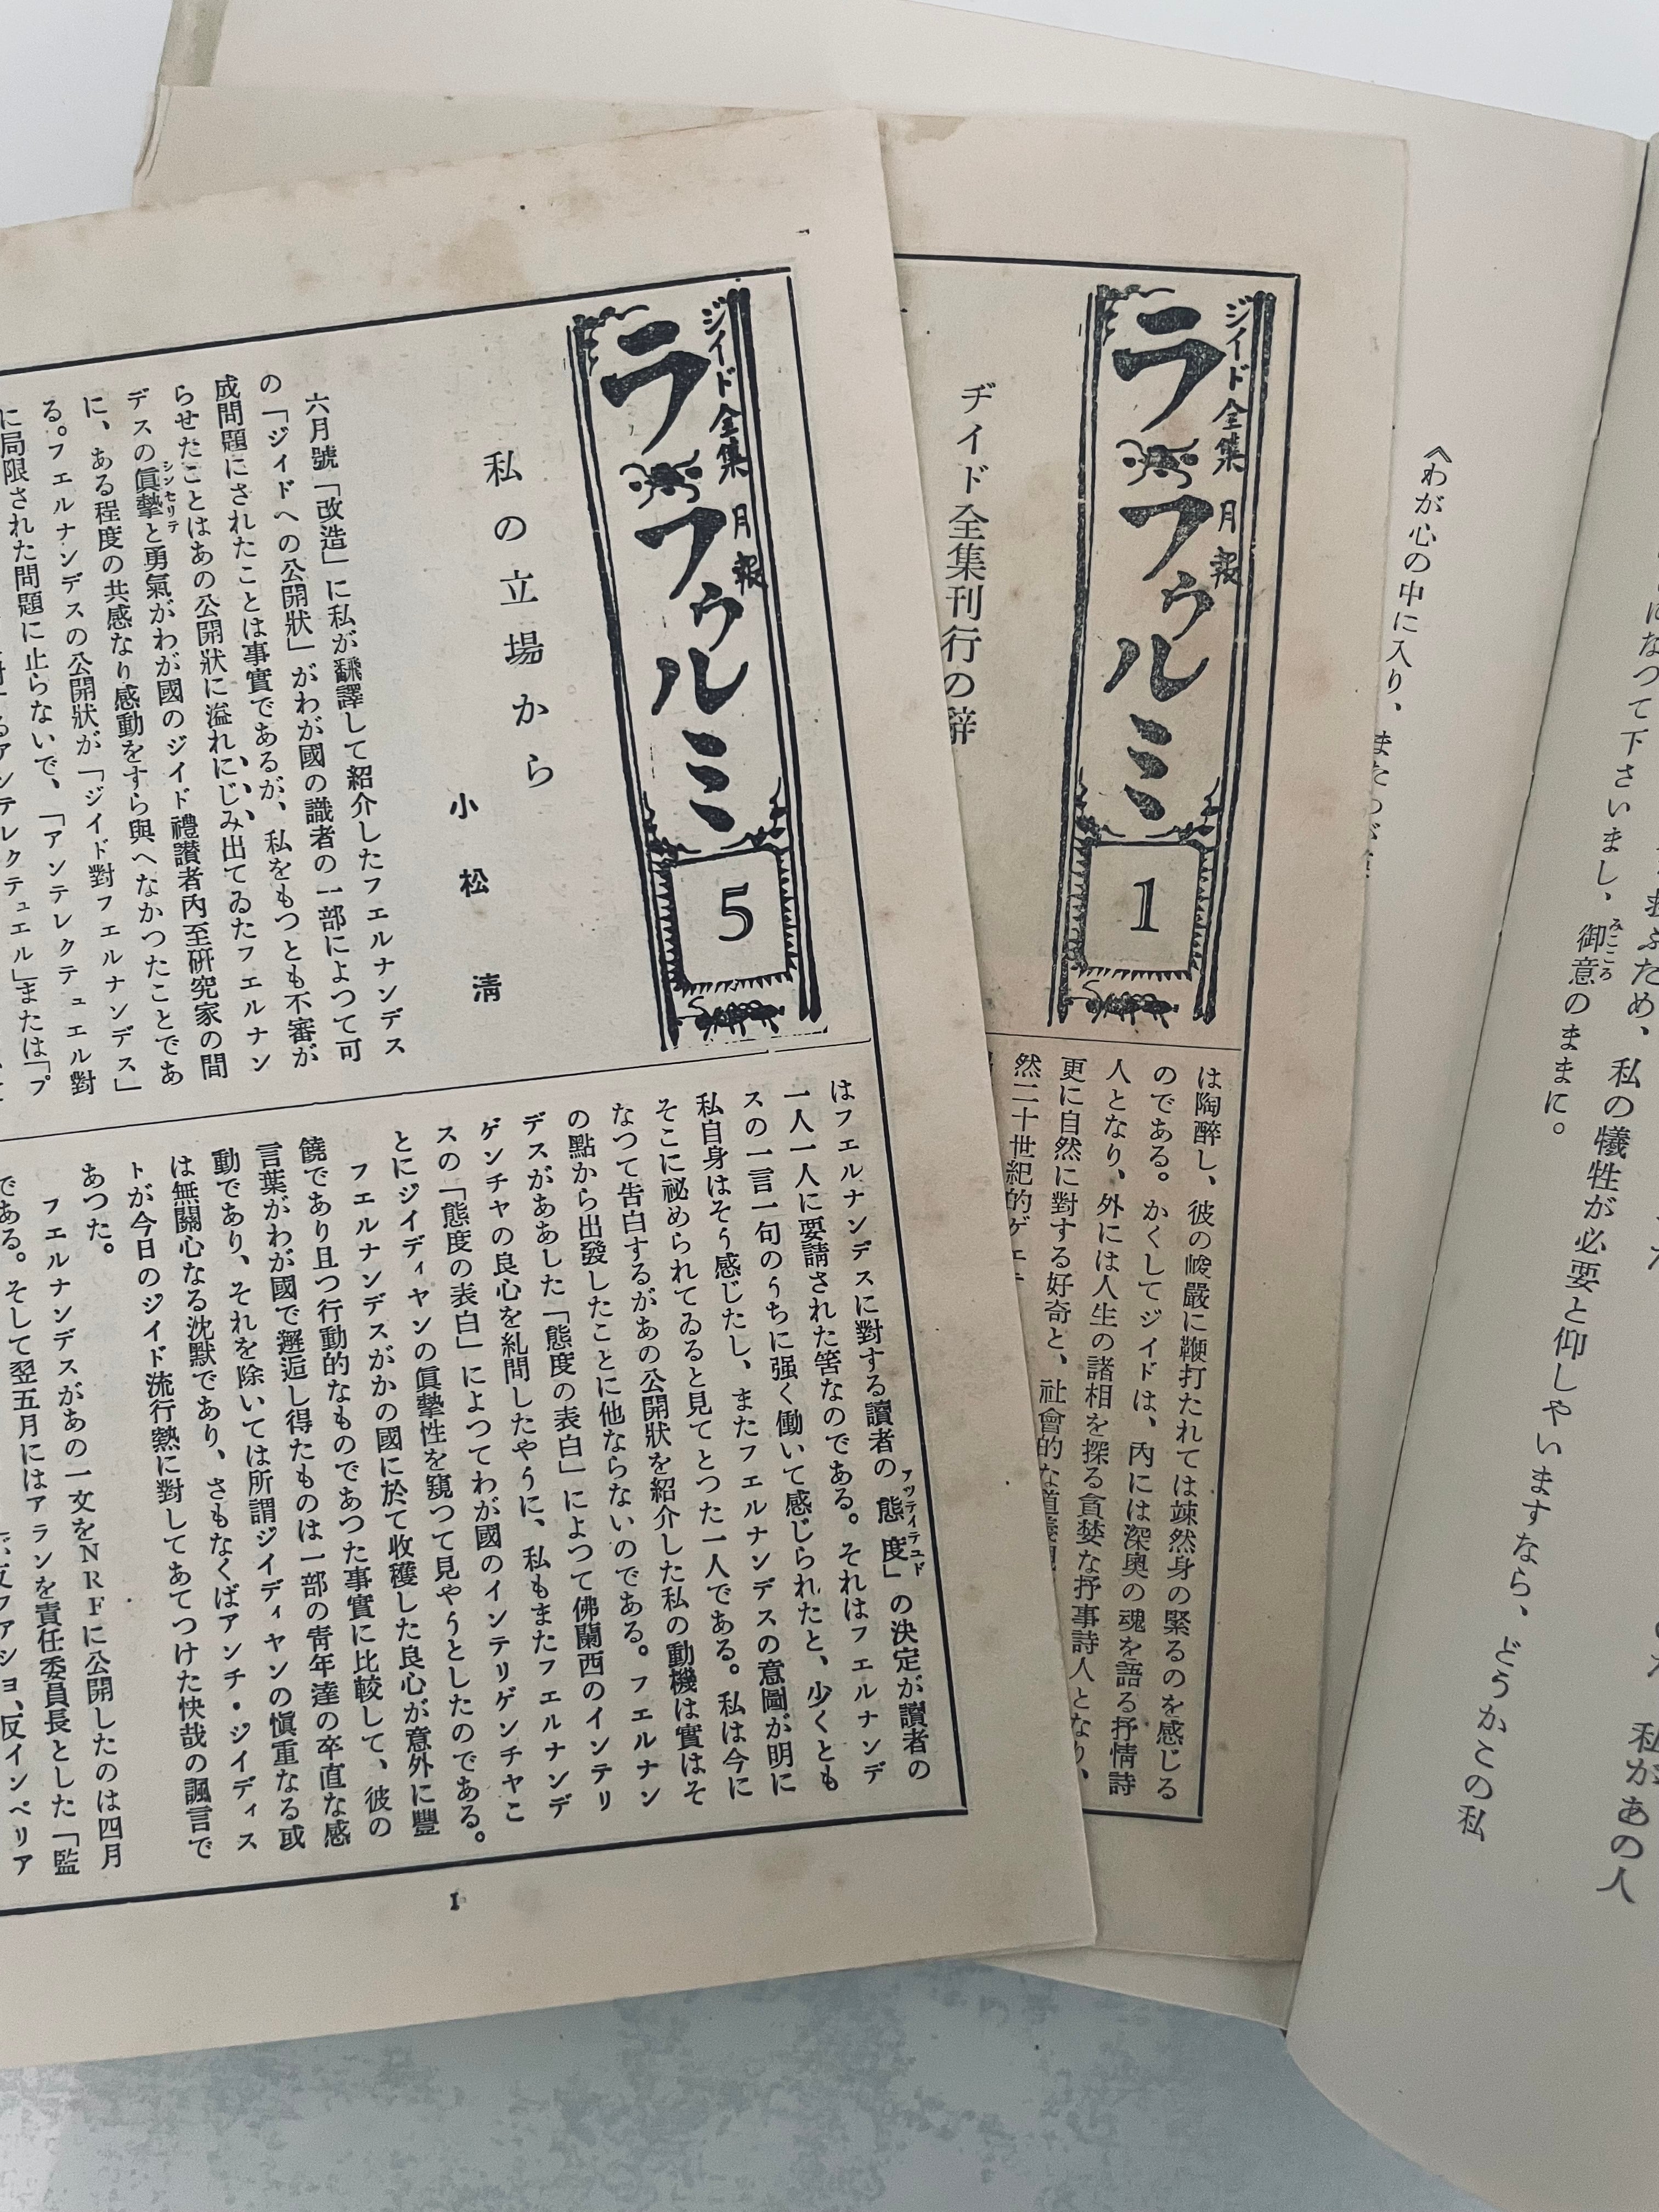 ジイド全集月報
ラ・フゥルミ
5
私の立場から
小松清
六月號「改造」に私が飜譯して紹介したフェルナンデス
の「ジイドへの公開狀」がわが國の識者の一部によつて可
成問題にされたことは事實であるが、私をもつとも不審が
らせたことはあの公開狀に溢れにじみ出てゐたフェルナン
デスの眞摯と勇氣がわが國のジイド禮讃者內至硏究家の間
シンセリテ
に、ある程度の共感なり感動をすら與へなかつたことであ
る。フェルナンデスの公開狀が「ジイド對フェルナンデス」
に局限された問題に止らないで、「アンテレクテュエル對
アンテレクテュエル」または「プ
はフェルナンデスに對する讀者の態度」の決定が讀者の
アッティテュド
一人一人に要請された筈なのである。それはフェルナンデ
スの一言一句のうちに强く働いて感じられたと、少くとも
私自身はそう感じたし、またフェルナンデスの意圖が明に
そこに祕められてゐると見てとつた一人である。私は今に
なつて告白するがあの公開狀を紹介した私の動機は實はそ
の點から出發したことに他ならないのである。フェルナン
デスがああした「態度の表白」によつて佛蘭西のインテリ
ゲンチヤの良心を糺問したやうに、私もまたフェルナンデ
スの「態度の表白」によつてわが國のインテリゲンチヤこ
とにジイディヤンの眞摯性を窺つて見やうとしたのである。
フェルナンデスがかの國に於て收穫した良心が意外に豐
饒であり且つ行動的なものであつた事實に比較して、彼の
言葉がわが國で邂逅し得たものは一部の靑年達の卒直な感
動であり、それを除いては所謂ジイディヤンの愼重なる或
は無關心なる沈默であり、さもなくばアンチ・ジイディス
トが今日のジイド流行熱に對してあてつけた快哉の諷言で
あつた。
フェルナンデスがあの一文をNRFに公開したのは四月
である。そして翌五月にはアランを責任委員長とした「監
反ファショ、反インペリア
1
ジイド全集月報
ラ・フゥルミ
1
ヂイド全集刊行の辭
は陶醉し、彼の峻嚴に鞭打たれては竦然身の緊るのを感じる
のである。かくしてジイドは、內には深奧の魂を語る抒情詩
人となり、外には人生の諸相を探る貪婪な抒事詩人となり、
更に自然に對する好奇と、社會的な道義
然二十世紀的ゲエテ
になつて下さいまし、御意のままに。
みこころ
ため、私の犧牲が必要と仰しやいますなら、どうかこの私
私があの人
《わが心の中に入り、また